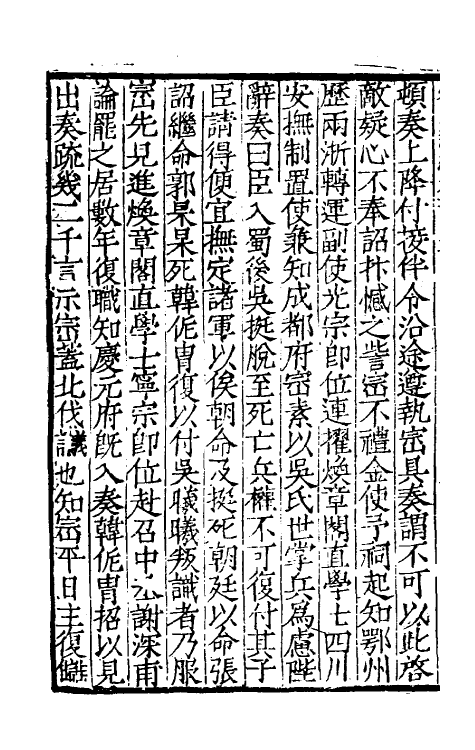 頓奏上降付筱伴令沿途遵執崈具奏謂不可以此啓
敵疑心不奉詔抃憾之訾崈不禮金使予祠起知鄂州
歷兩浙轉運副使光宗即位連擢煥章閣直學士四川
安撫制置使兼知成都府崈素以吳氏世掌兵為慮陛
辭奏曰臣入蜀後吳挺脫至死亡兵權不可復付其子
臣請得便宜撫定諸軍以俟朝命及挺死朝廷以命張
詔繼命郭杲杲死韓侂冑復以付吳曦曦叛識者乃服
崈先見進煥章閣直學士寧宗即位赴召中丞謝深甫
論罷之居數年復職知慶元府既入奏韓侂冑招以見
出奏疏幾二千言示崈蓋北伐議也知崈平日主復讎